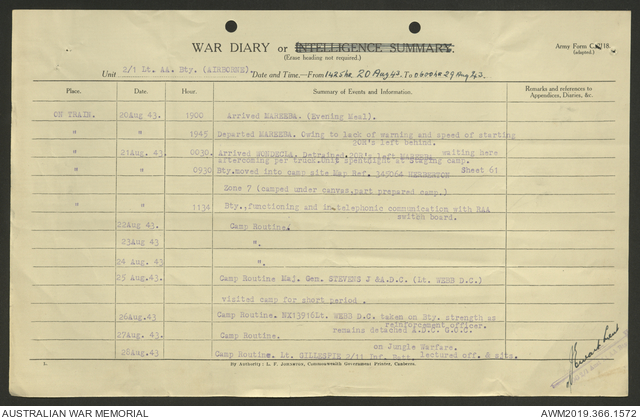 WAR DIARY or INTELLIGENCE SUMMARY.
(Erase heading not required.)
Army Form C.2118.
(adapted.)
Unit 2/1 Lt. AA. Bty. (AIRBORNE) Date and Time.—From 1425hr 20 Aug 43. To 0600hr 29 Aug 43.
Place. Date. Hour. Summary of Events and Information. Remarks and references to Appendices, Diaries, &c.
ON TRAIN. 20Aug 43. 1900 Arrived MAREEBA. (Evening Meal).
" " 1945 Departed MAREEBA. Owing to lack of warning and speed of starting
2OR's left behind.
" 21Aug 43. 0030. Arrived WONDECLA. Detrained. 2OR's left MAREEBA waiting here
aftercoming per truck. Unit spent night at staging camp.
" " 0930 Bty. moved into camp site Map Ref. 345064 HERBERTON Sheet 61
Zone 7 (camped under canvas, part prepared camp.)
" " 1134 Bty., functioning and in telephonic communication with RAA
switch board.
22Aug 43 Camp Routine.
23Aug 43 ".
24 Aug 43. ".
25 Aug 43. Camp Routine Maj. Gen. STEVENS J & A.D.C. (Lt. WEBB D.C.)
visited camp for short period.
26Aug 43. Camp Routine. NX13916 Lt. WEBB D.C. taken on Bty. strength as
reinforcement officer.
remains detached A.D.C. G.O.C.
27Aug 43. Camp Routine.
on Jungle Warfare.
28Aug 43 Camp Routine. Lt. GILLESPIE 2/11 Inf. Batt. lectured off. & sjts.
1. By Authority: L. F. Johnston, Commonwealth Government Printer, Canberra.
AUSTRALIAN WAR MEMORIAL AWM2019.366.1572